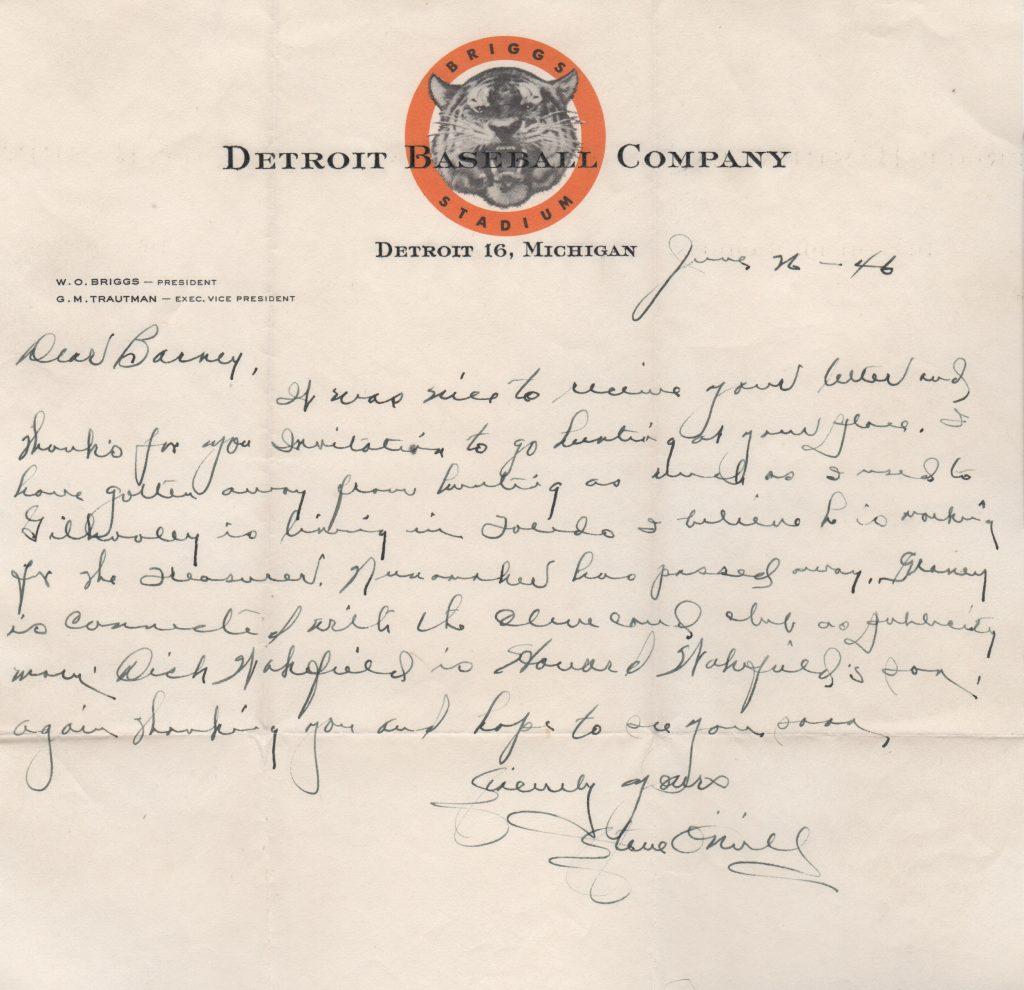 BRIGGS
DETROIT BASEBALL COMPANY
STADIUM
DETROIT 16, MICHIGAN
June 26 - 46
W. O. BRIGGS — PRESIDENT
G. M. TRAUTMAN — EXEC. VICE PRESIDENT
Dear Barney,
It was nice to receive your letter and
thanks for you Invitation to go hunting at your place. I
have gotten away from hunting as much as I used to
Gilhooley is living in Toledo I believe he is working
for the Treasurer. Nunamaker has passed away. Graney
is connected with the Cleveland club as publicity
man. Dick Wakefield is Howard Wakefield's son.
again thanking you and hope to see you soon,
Sincerely yours
Steve O'Neill